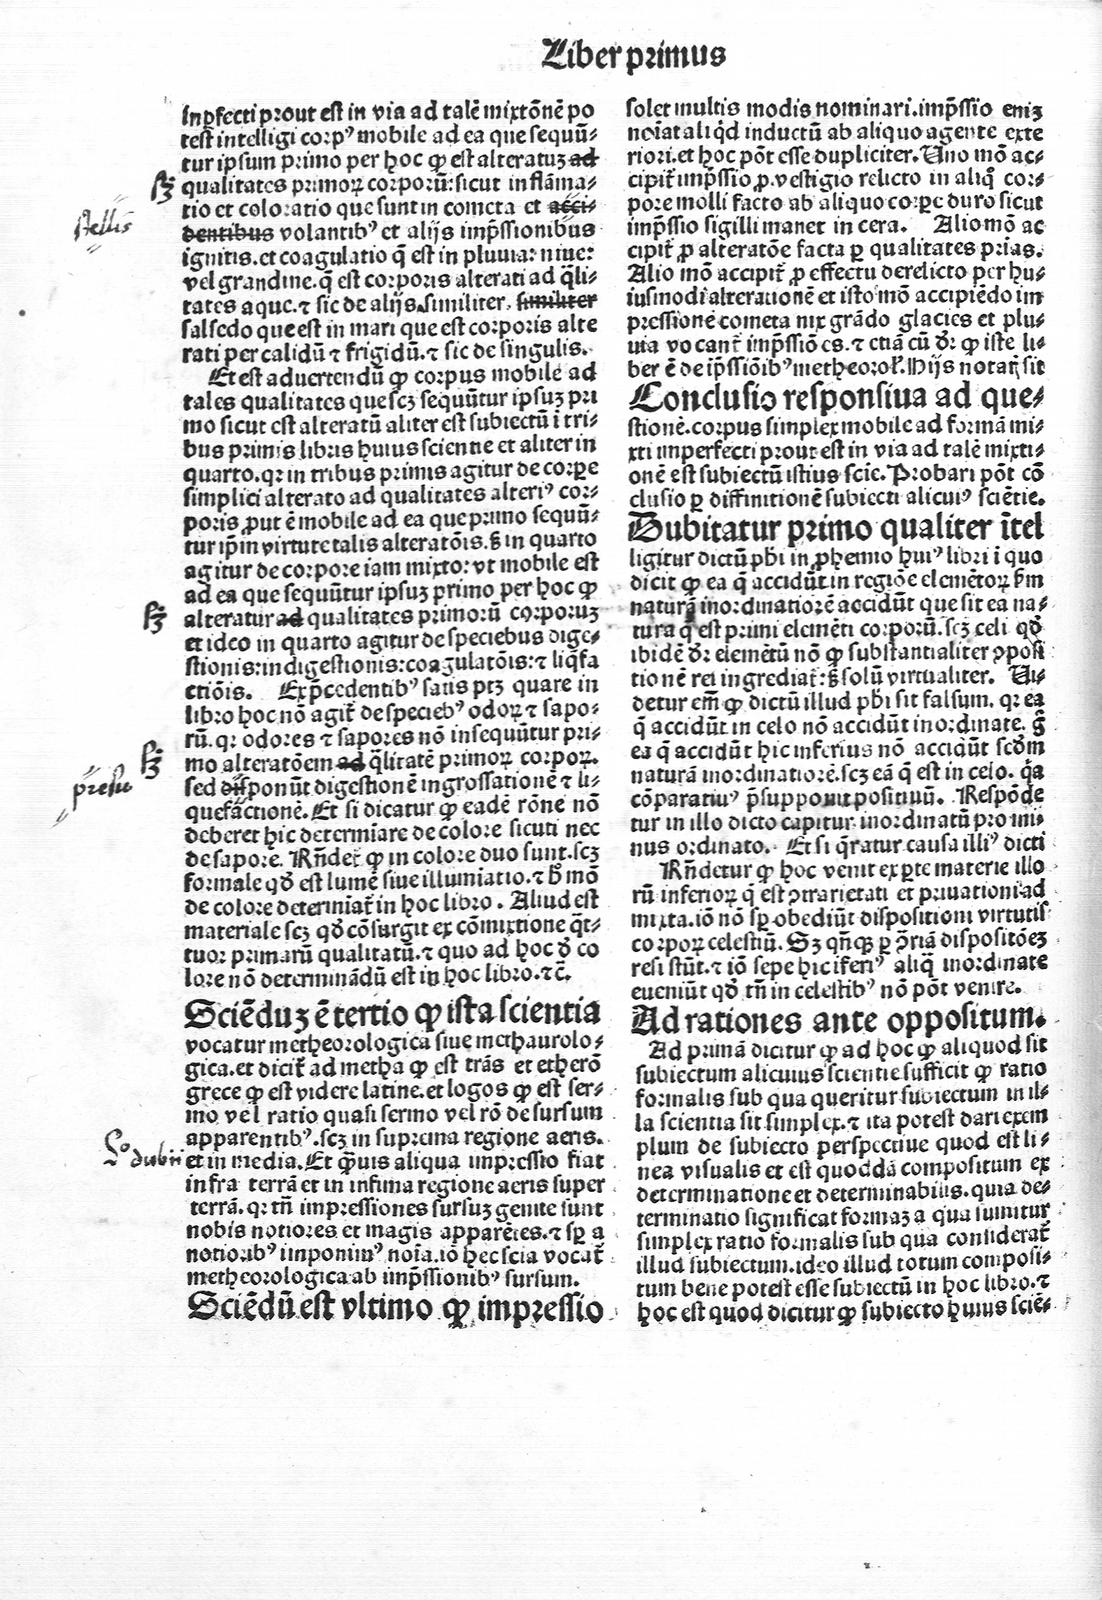 Liber primus
inp̱fecti prout est in via ad talē mixtōnē po
test intelligi corpꝰ mobile ad ea que sequū⸗
tur ipsum primo per hoc ꝙ est alteratuꝫ ad
qualitates primoꝝ corporū: sicut inflāma⸗
tio et coloratio que sunt in cometa et acci⸗
dentibus volantibꝰ et alijs imp̄ssionibus
ignitis. et coagulatio q̄ est in pluuia: niue:
vel grandine. q̄ est corporis alterati ad q̄li⸗
tates aque. ⁊ sic de alijs. Similiter, similiter
salsedo que est in mari que est corporis alte
rati per calidū ⁊ frigidū. ⁊ sic de singulis.
Et est aduertendū ꝙ corpus mobile ad
tales qualitates que scꝫ sequūtur ipsuꝫ pri
mo sicut est alteratū aliter est subiectū ī tri⸗
bus primis libris huius scientie et aliter in
quarto. qꝛ in tribus primis agitur de corꝑe
simplici alterato ad qualitates alteriꝰ cor⸗
poris ꝓut ē mobile ad ea que primo sequū⸗
tur ip̄m in virtute talis alteratōis. ꝭ in quarto
agitur de corpore iam mixto: vt mobile est
ad ea que sequūtur ipsuꝫ primo per hoc ꝙ
alteratur ad qualitates primorū corporuꝫ
et ideo in quarto agitur de speciebus dige⸗
stionis: indigestionis: coagulatōis: ⁊ liq̄fa
ctiōis. Exp̄cedentibꝰ satis ptꝫ quare in
libro hoc nō agit̄ de speciebꝰ odoꝝ ⁊ sapo⸗
rū. qꝛ odores ⁊ sapores nō insequūtur pri⸗
mo alteratōem ad q̄litatē primoꝝ corpoꝝ.
sed disponūt digestionē ingrossationē ⁊ li⸗
quefactionē. Et si dicatur ꝙ eadē rōne nō
deberet hic determīare de colore sicuti nec
de sapore. Rn̄det̄ ꝙ in colore duo sunt. scꝫ
formale qđ est lumē siue illuminatio. ⁊ h̄ mō
de colore determiat̄ in hoc libro. Aliud est
materiale scꝫ qđ cōsurgit ex cōmixtione q̄t⸗
tuor primarū qualitatū. ⁊ quo ad hoc đ co
lore nō determinādū est in hoc libro. ⁊c̄.
Sciēduꝫ ē tertio ꝙ ista scientia
vocatur metheorologica siue methaurolo⸗
gica. et dicit̄ ad metha ꝙ est trās et etherō
grece ꝙ est videre latine. et logos ꝙ est ser⸗
mo vel ratio quasi sermo vel rō de sursum
apparentibꝰ. scꝫ in suprema regione aeris.
et in media. Et q̄uis aliqua impressio fiat
infra terrā et in infima regione aeris super
terrā. qꝛ tn̄ impressiones sursuꝫ genite sunt
nobis notiores et magis apparētes. ⁊ sꝑ a
notioribꝰ imponimꝰ noīa. iō hec scīa vocat̄
metheorologica ab imp̄ssionibꝰ sursum.
Sciēdū est vltimo ꝙ impressio
stellis
presu
Lo dubii
solet multis modis nominari. imp̄ssio eniꝫ
noīat aliq̄d inductū ab aliquo agente exte
riori. et hoc pōt esse dupliciter. Uno mō ac⸗
cipit̄ imp̄ssio ꝓ vestigio relicto in aliq̊ cor⸗
pore molli facto ab aliquo corpe duro sicut
imp̄ssio sigilli manet in cera. Alio mō ac
cipit̄ ꝓ alteratōe facta ꝑ qualitates prīas.
Alio mō accipit̄ ꝓ effectu derelicto per hu⸗
iusmodi alterationē et isto mō accipiēdo im
pressionē cometa nix grādo glacies et plu⸗
uia vocant̄ imp̄ssiōes. ⁊ etiā cū dr̄ ꝙ iste li⸗
ber ē de ip̄ssiōibꝰ metheoroł. Hijs notat̄ sit
Conclusio responsiua ad que⸗
stionē. corpus simplex mobile ad formā mi⸗
xti imperfecti prout est in via ad talē mixti⸗
onē est subiectū istius scīe. Probari pōt cō
clusio ꝑ diffinitionē subiecti alicuiꝰ sciētie.
Dubitatur primo qualiter ītel
ligitur dictū phī in ꝓhemio huiꝰ libri ī quo
dicit ꝙ ea q̄ accidūt in regiōe elemētoꝝ ẜm
naturā inordinatiorē accidūt que sit ea na⸗
tura q̄ est primi elemēti corporū. scꝫ celi qđ
ibidē dr̄ elemētū nō ꝙ substantialiter ꝯposi
tionē rei ingrediat̄: ꝭ solū virtualiter. Ui⸗
detur em̄ ꝙ dictū illud phī sit falsum. qꝛ ea
q̄ accidūt in celo nō accidūt inordinate. g̊
ea q̄ accidūt hic inferius nō accidūt scd̄m
naturā inordinatiorē. scꝫ eā q̄ est in celo. q̄a
cōparatiuꝰ p̄supponit positiuū. Respōde
tur in illo dicto capitur inordinatū pro mi⸗
nus ordinato. Et si q̄ratur causa illiꝰ dicti
Rn̄detur ꝙ hoc venit ex ꝑte materie illo
rū inferioꝝ q̄ est ꝯtrarietati et priuationi ad
mixta. iō nō sꝑ obediūt dispositioni virtutis
corpoꝝ celestiū. Sꝫ qn̄qꝫ ꝑ ꝯ̄riā dispositōeꝫ
resistūt. ⁊ iō sepe hic iferiꝰ aliq̄ inordinate
eueniūt qđ tn̄ in celestibꝰ nō pōt venire.
Ad rationes ante oppositum.
Ad primā dicitur ꝙ ad hoc ꝙ aliquod sit
subiectum alicuius scientie sufficit ꝙ ratio
formalis sub qua queritur subiectum in il⸗
la scientia sit simplex. ⁊ ita potest dari exem
plum de subiecto perspectiue quod est li⸗
nea visualis et est quoddā compositum ex
determinatione et determinabilis. quia de⸗
terminatio significat formaꝫ a qua sumitur
simplex ratio formalis sub qua considerat̄
illud subiectum. ideo illud totum composi⸗
tum bene potest esse subiectū in hoc libro. ⁊
hoc est quod dicitur ꝙ subiecto huius sciē⸗